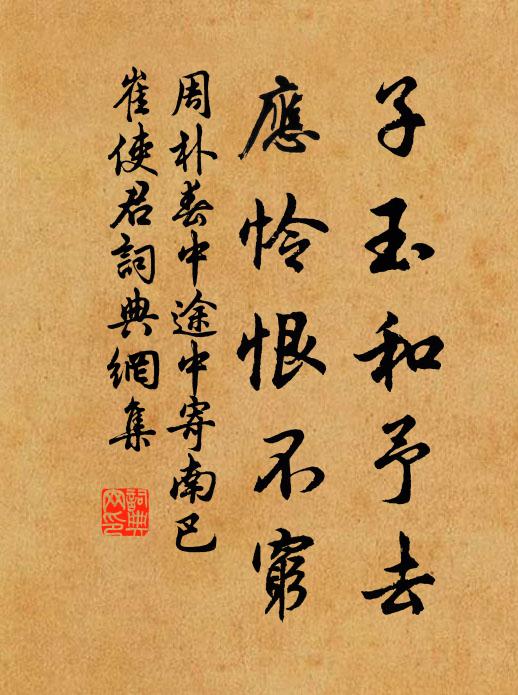 子玉和予去
應怜恨不窮
周朴春中途中寄南巴
崔使君詞典網集
詞典
网印